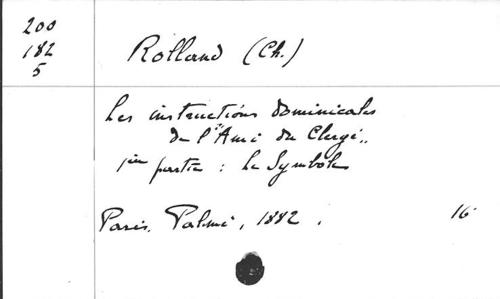 200
182
5
Rolland (Ch.)
Les instructions dominicales
de l'"Ami du Clergé"
1ère partie : Le Symbole
Paris, Palmé, 1882.
16°